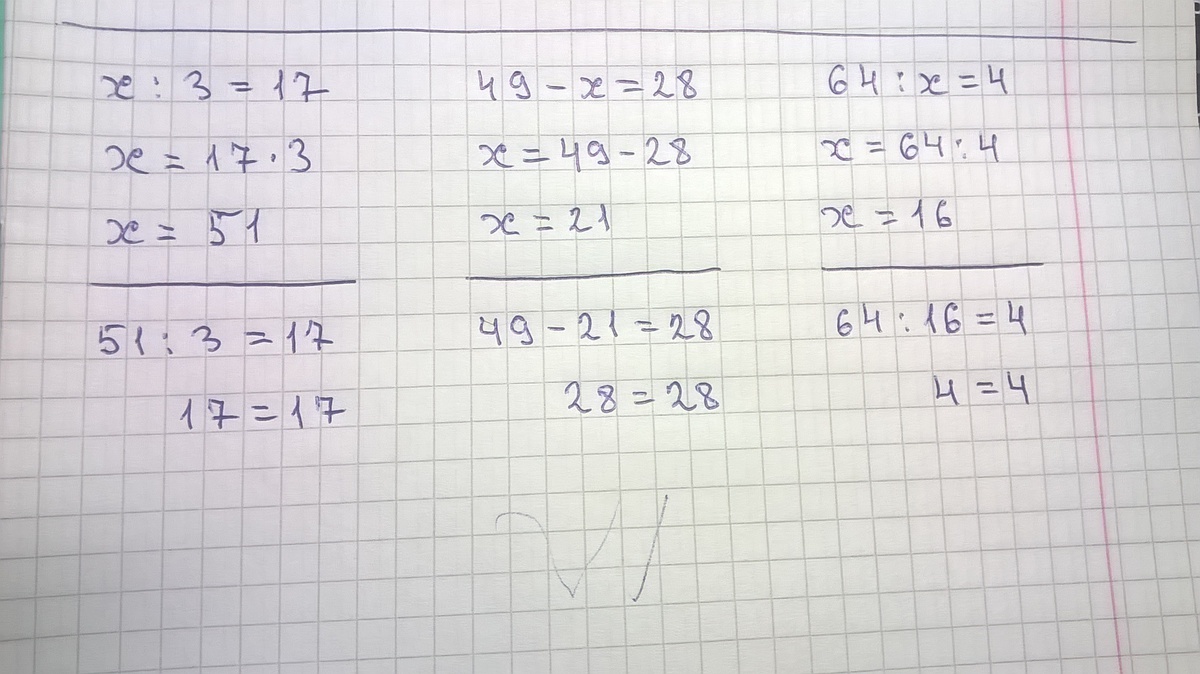 x : 3 = 17
x = 17 · 3
x = 51
51 : 3 = 17
17 = 17
49 - x = 28
x = 49 - 28
x = 21
49 - 21 = 28
28 = 28
64 : x = 4
x = 64 : 4
x = 16
64 : 16 = 4
4 = 4